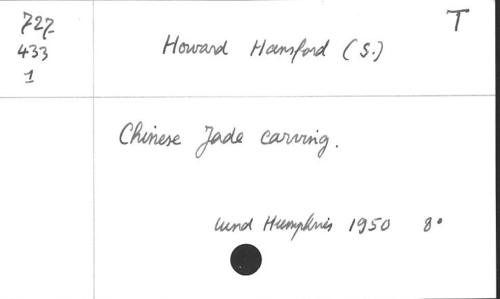 727.
433
1
T
Howard Hansford (S.)
Chinese Jade carving.
Lund Humphries 1950 8°